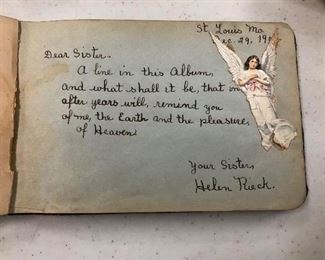 St. Louis Mo.
Dec. 29, 19
Dear Sister.
A line in this Album,
and what shall it be, that in
after years will, remind you
of me, the Earth and the pleasure,
of Heaven.
Your Sister,
Helen Rieck.